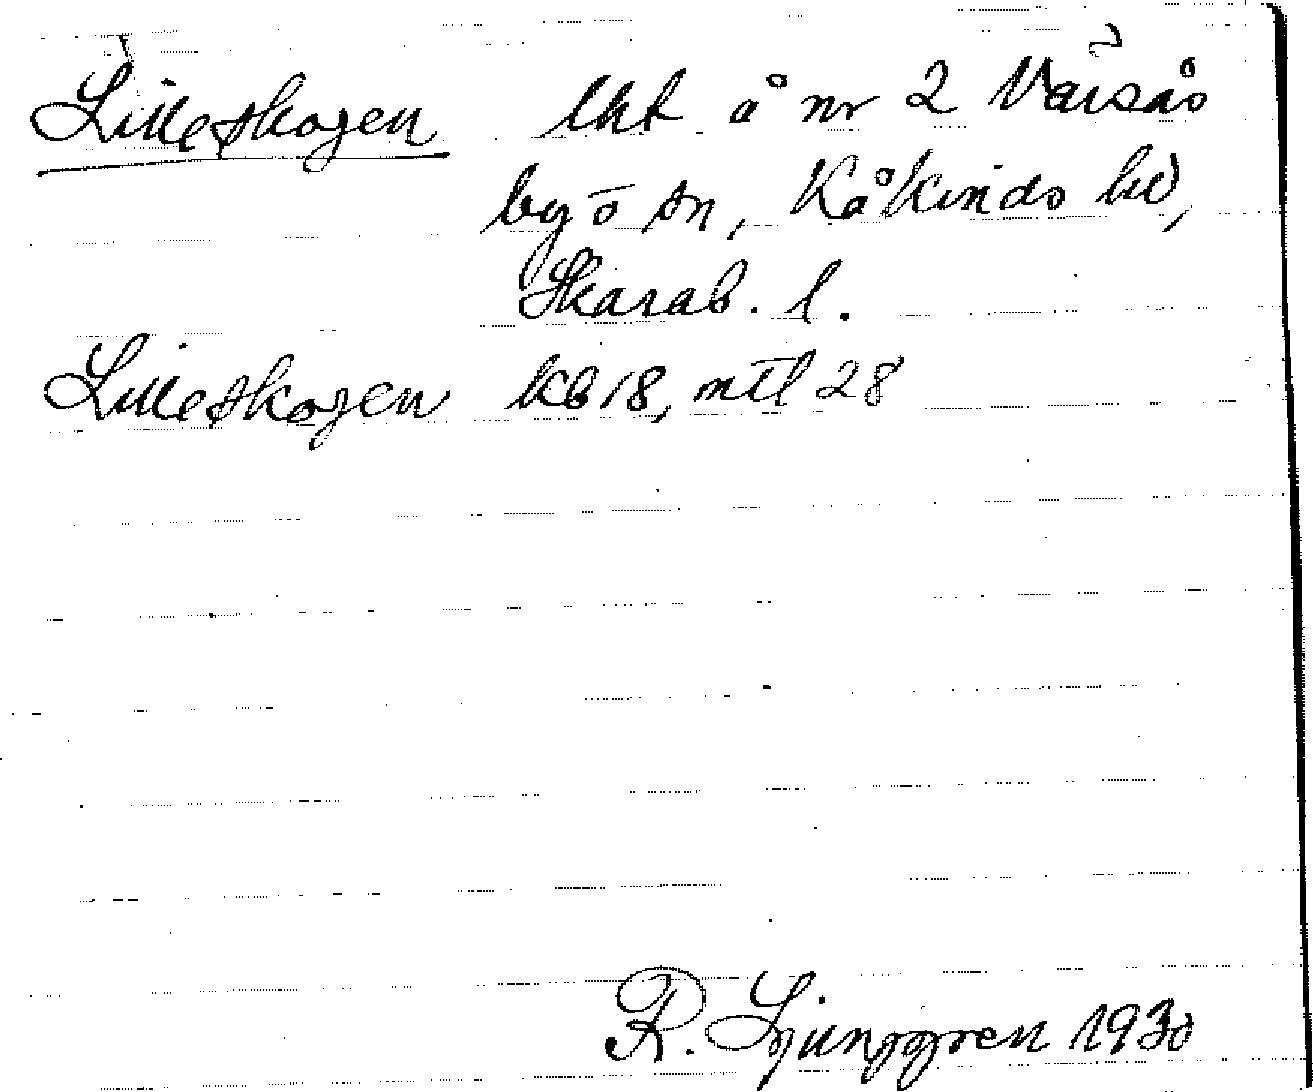 Lilleskogen lht å nr 2 Varsås
by o sn, Kåkinds hd,
Skarab. l.
Lilleskogen kb 18, mtl 28
R. Ljunggren 1930